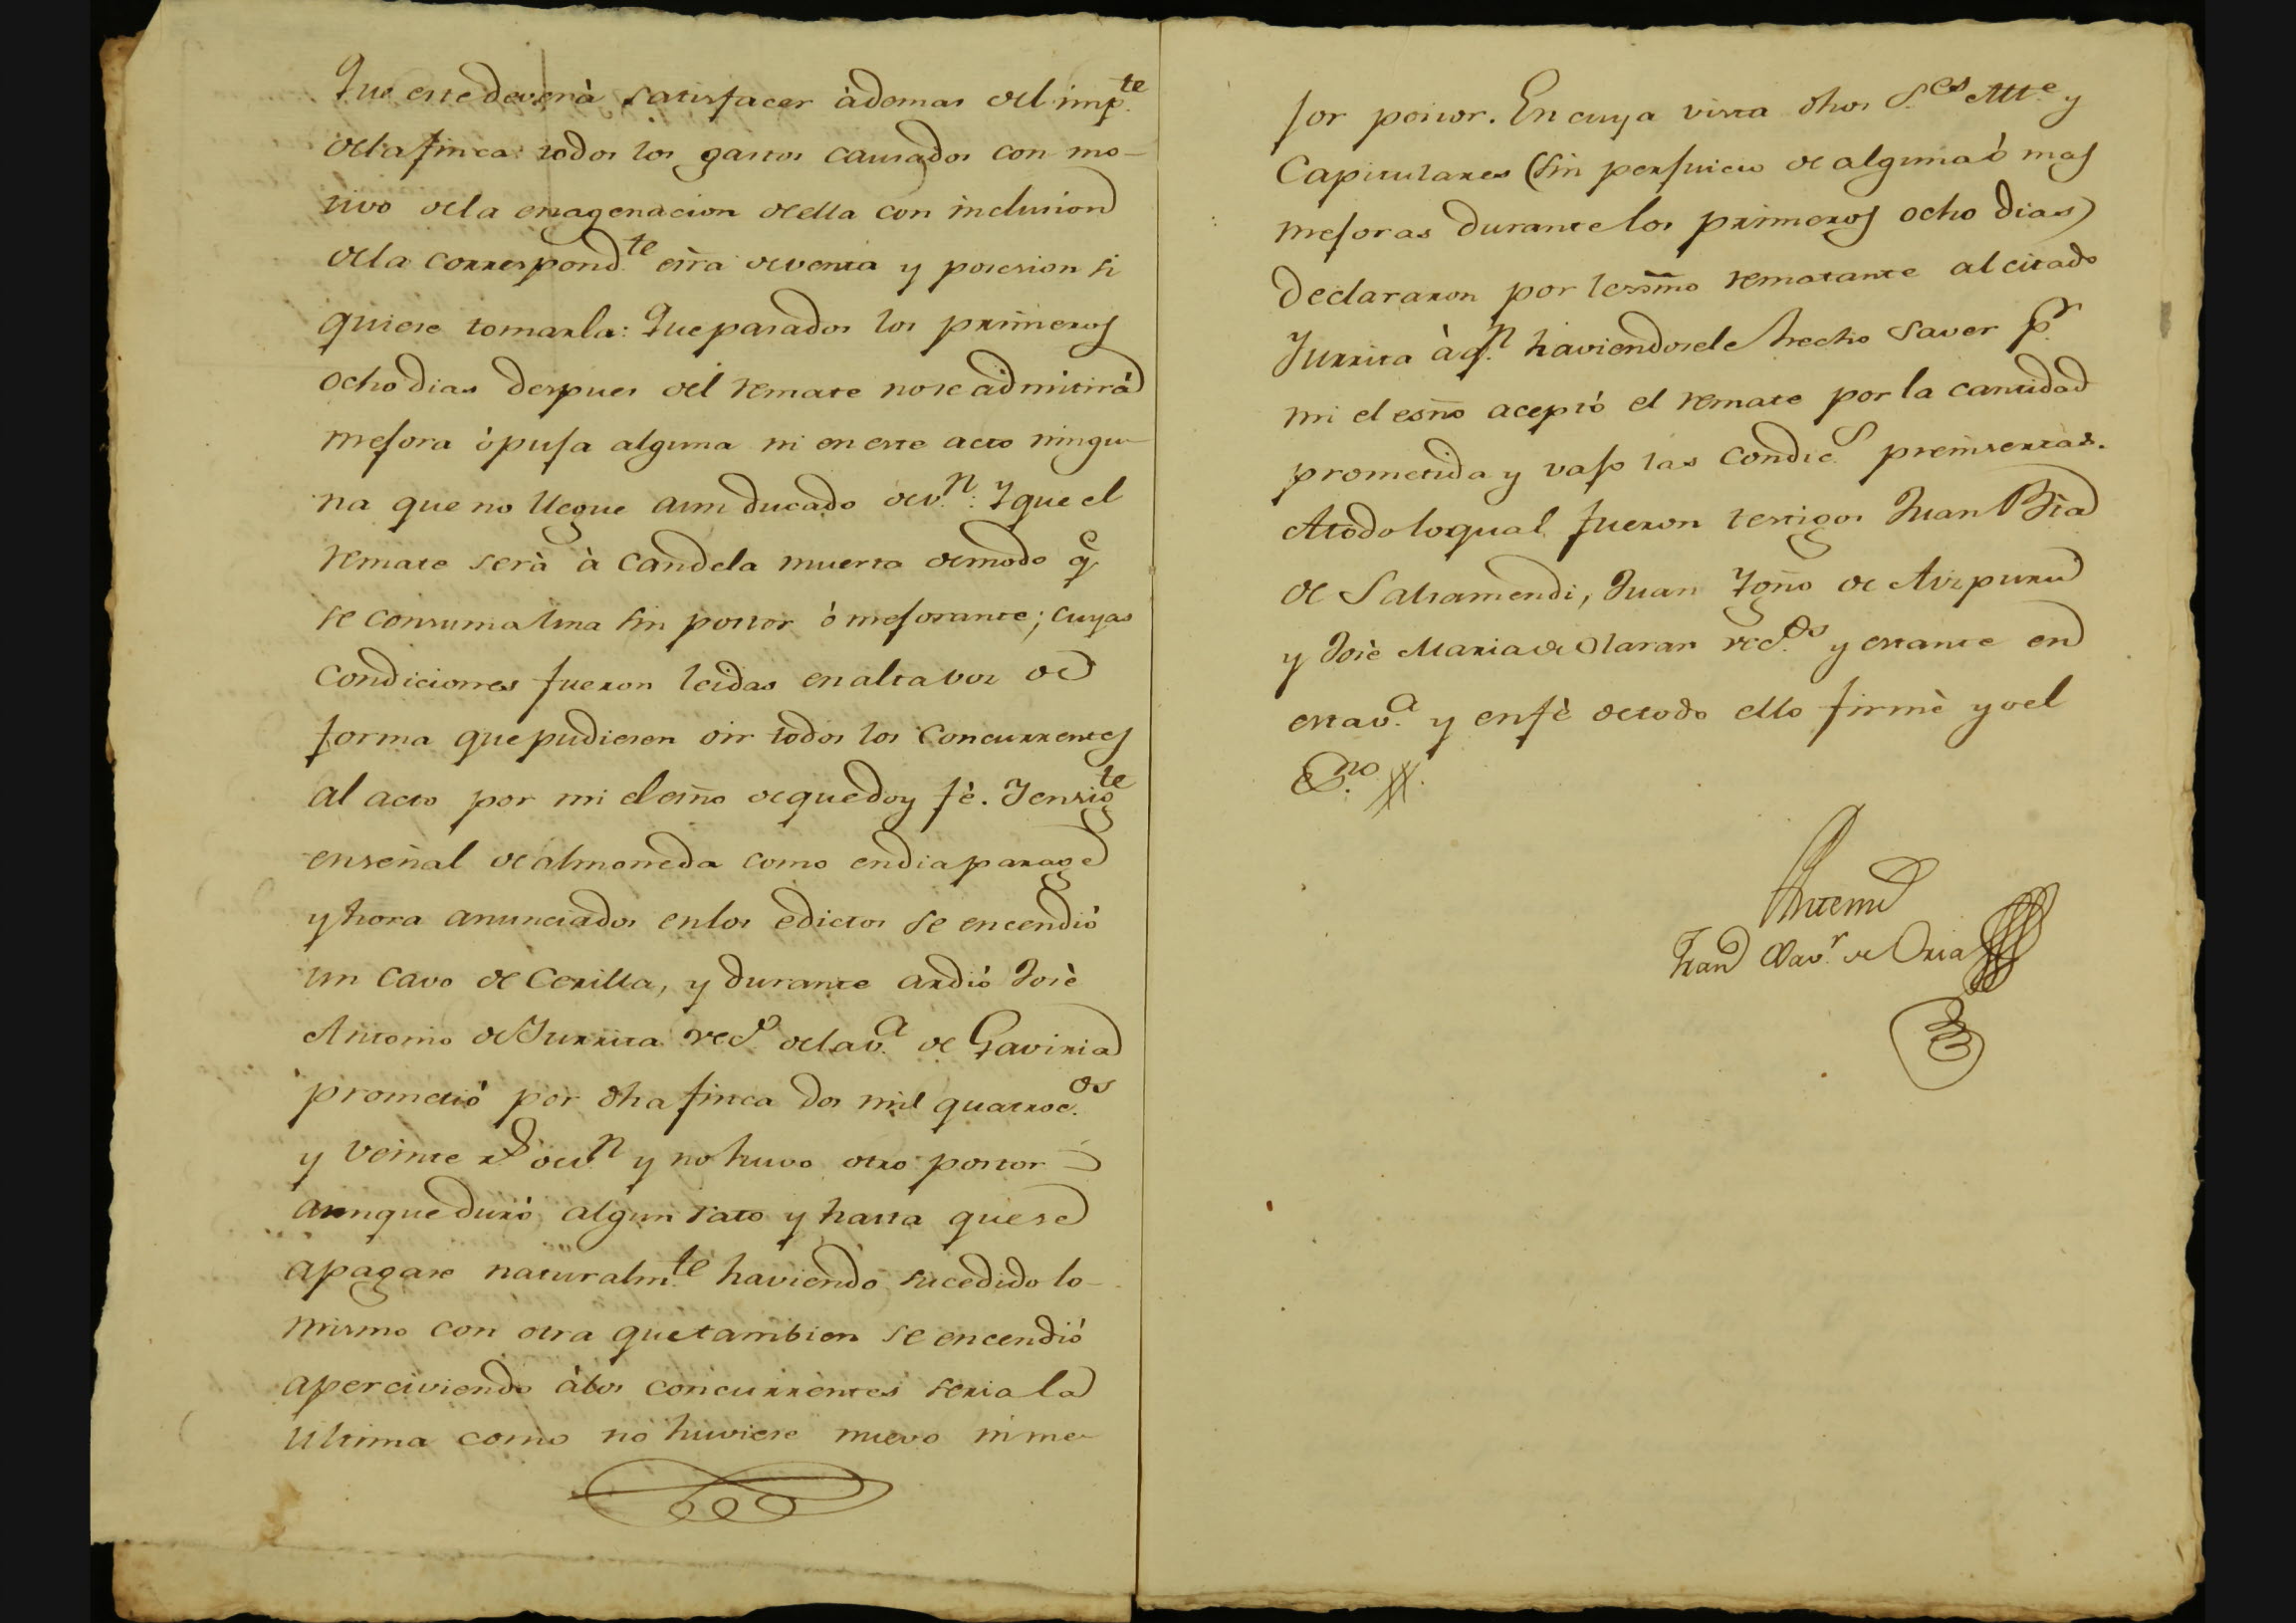 Que este deverà satisfacer àdemas del imp.te
dela finca todos los gastos causados con mo-
tivo dela enagenacion de ella con inclusion
dela correspond.te esrã de venta y posesion si
quiere tomarla: Que pasados los primeros
ocho dias despues del remate no se admitirá
mejora ò puja alguna ni en este acto ningu-
na que no llegue a un ducado de v.n: Y que el
remate serà à candela muerta de modo q.e
se consuma una sin postor ò mejorante; cuyas
condiciones fueron leidas en alta voz de
forma que pudiesen oir todos los concurrentes
al acto por mi el esño de que doy fè. Y en sig.te
en señal de almoneda como en dia parage
y hora anunciados en los edictos se encendiò
un cavo de Cerilla, y durante ardiò Josè
Antonio de Yurrita vec.o dela v.a de Gaviria
prometiò por dha finca dos mil quatroc.os
y veinte r.s de v.n y no huvo otro postor
aunque durò algun rato y hasta que se
apagase naturalm.te haviendo sucedido lo
mismo con otra que tambien se encendiò
aperciviendo à los concurrentes seria la
ultima como no huviese nuevo ni me-
jor postor. En cuya vista dhos S.es Alc.e y
Capitulares (sin perjuicio de alguna ò mas
mejoras durante los primeros ocho dias)
declararon por lexmo rematante al citado
Yurrita à q.n haviendosele hecho saver p.r
mi el esño aceptò el remate por la cantidad
prometida y vajo las condic.s preinsertas.
A todo lo qual fueron testigos Juan Bta
de Salsamendi, Juan Ygño de Aizpuru
y Josè Maria de Olaran vec.os y estante en
esta v.a y en fè de todo ello firmè yo el
Es.no
Antemi
Fran Xav.r de Oria